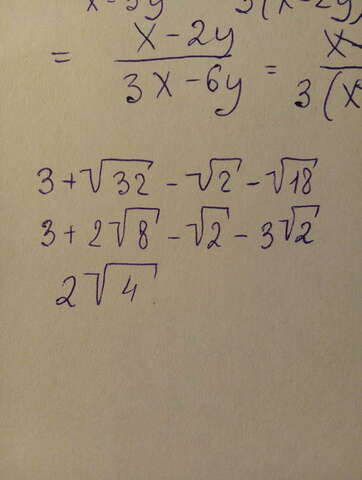 x-3y 3(x-2y)
= x-2y / 3x-6y = x- / 3(x
3+√32 -√2 -√18
3+2√8 -√2 -3√2
2√4